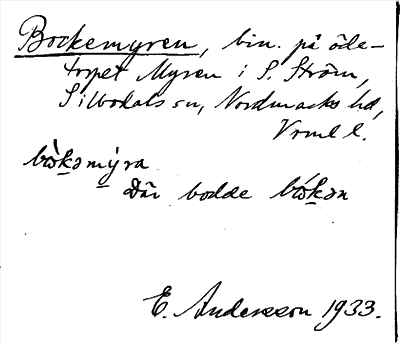 Bockemyren, bin. på öde-
torpet Myren i S. Ström,
Silbodals sn, Nordmarks hd,
Vrml l.
bòkəmýra
Där bodde bókən
E. Andersson 1933.